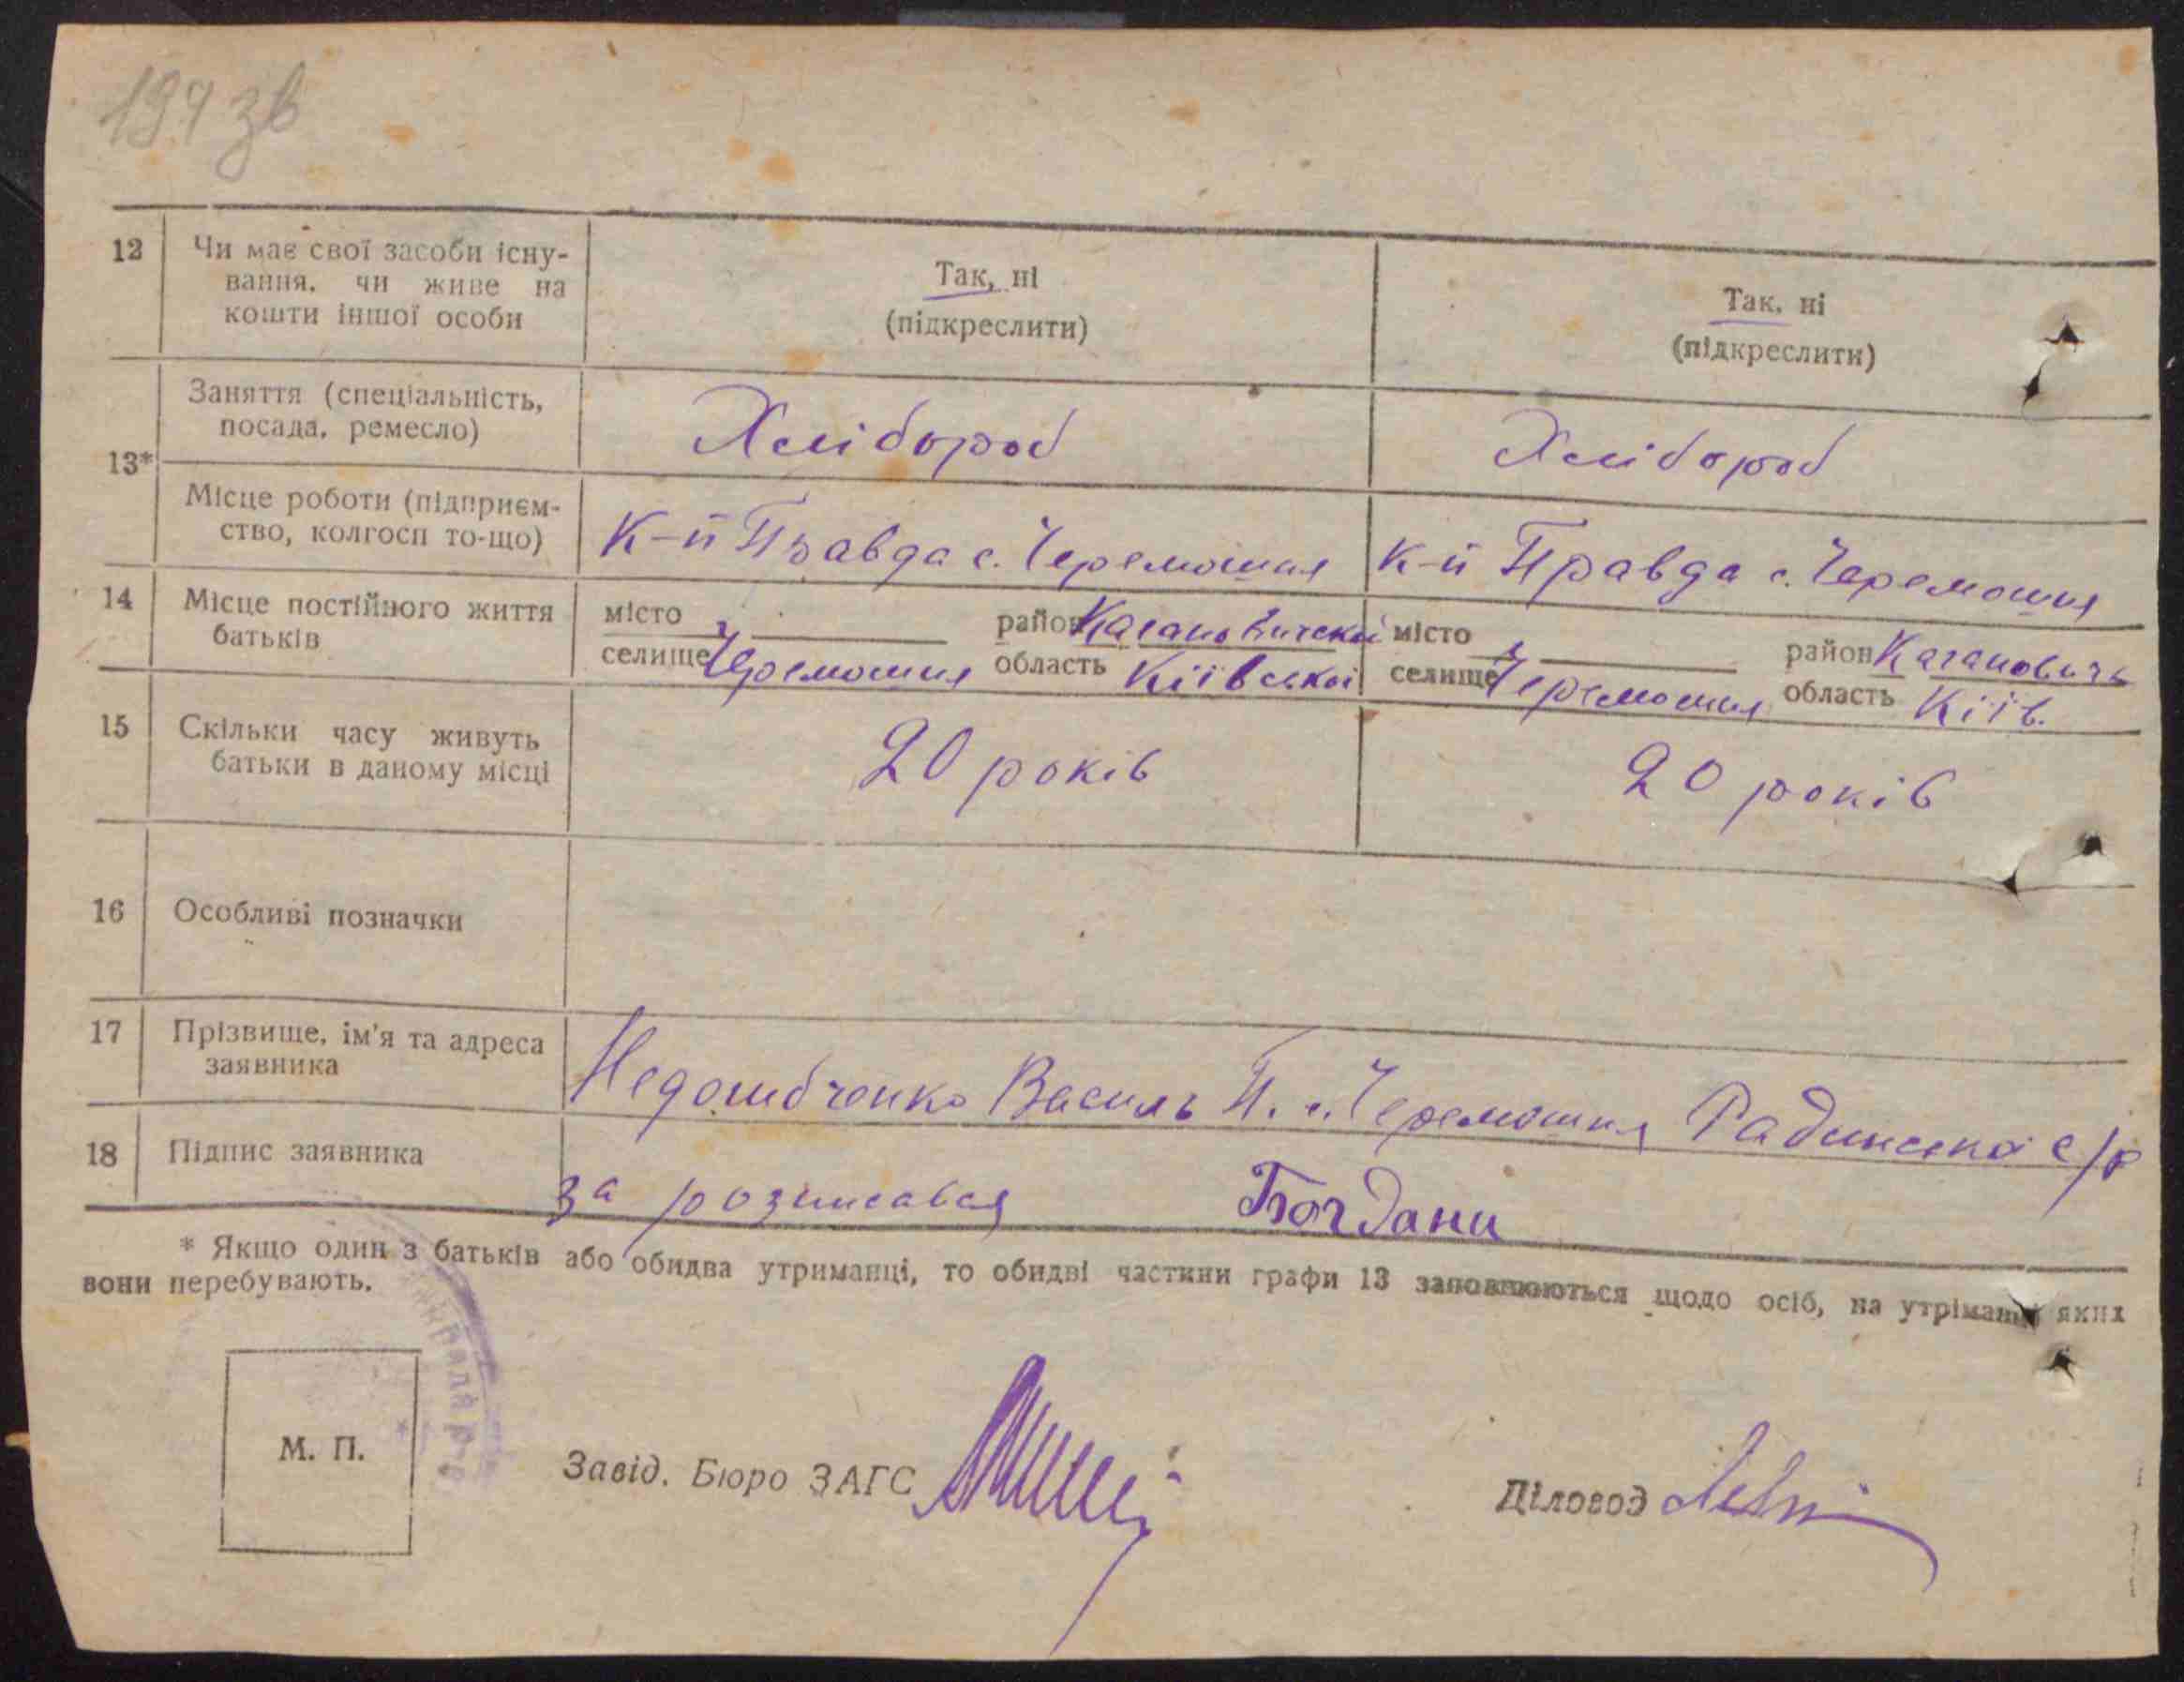 194 зв
12 Чи має свої засоби існу- Так, ні Так, ні
вання, чи живе на (підкреслити) (підкреслити)
кошти іншої особи
Заняття (спеціальність, Хлібороб Хлібороб
посада, ремесло)
13*
Місце роботи (підприєм- К-п Правда с. Черемошня К-п Правда с. Черемошня
ство, колгосп то-що)
14 Місце постійного життя місто район Кагановичскої місто район Кагановичь
батьків селище Черемошня область Київської селище Черемошня область Київ.
15 Скільки часу живуть 20 років 20 років
батьки в даному місці
16 Особливі позначки
17 Прізвище, ім'я та адреса Василь П. с. Черемошня с/р
заявника
18 Підпис заявника за розписався Богдани
* Якщо один з батьків або обидва утриманці, то обидві частини графи 13 заповнюються щодо осіб, на утріманні яких
вони перебувають.
М. П. Завід. Бюро ЗАГС Діловод